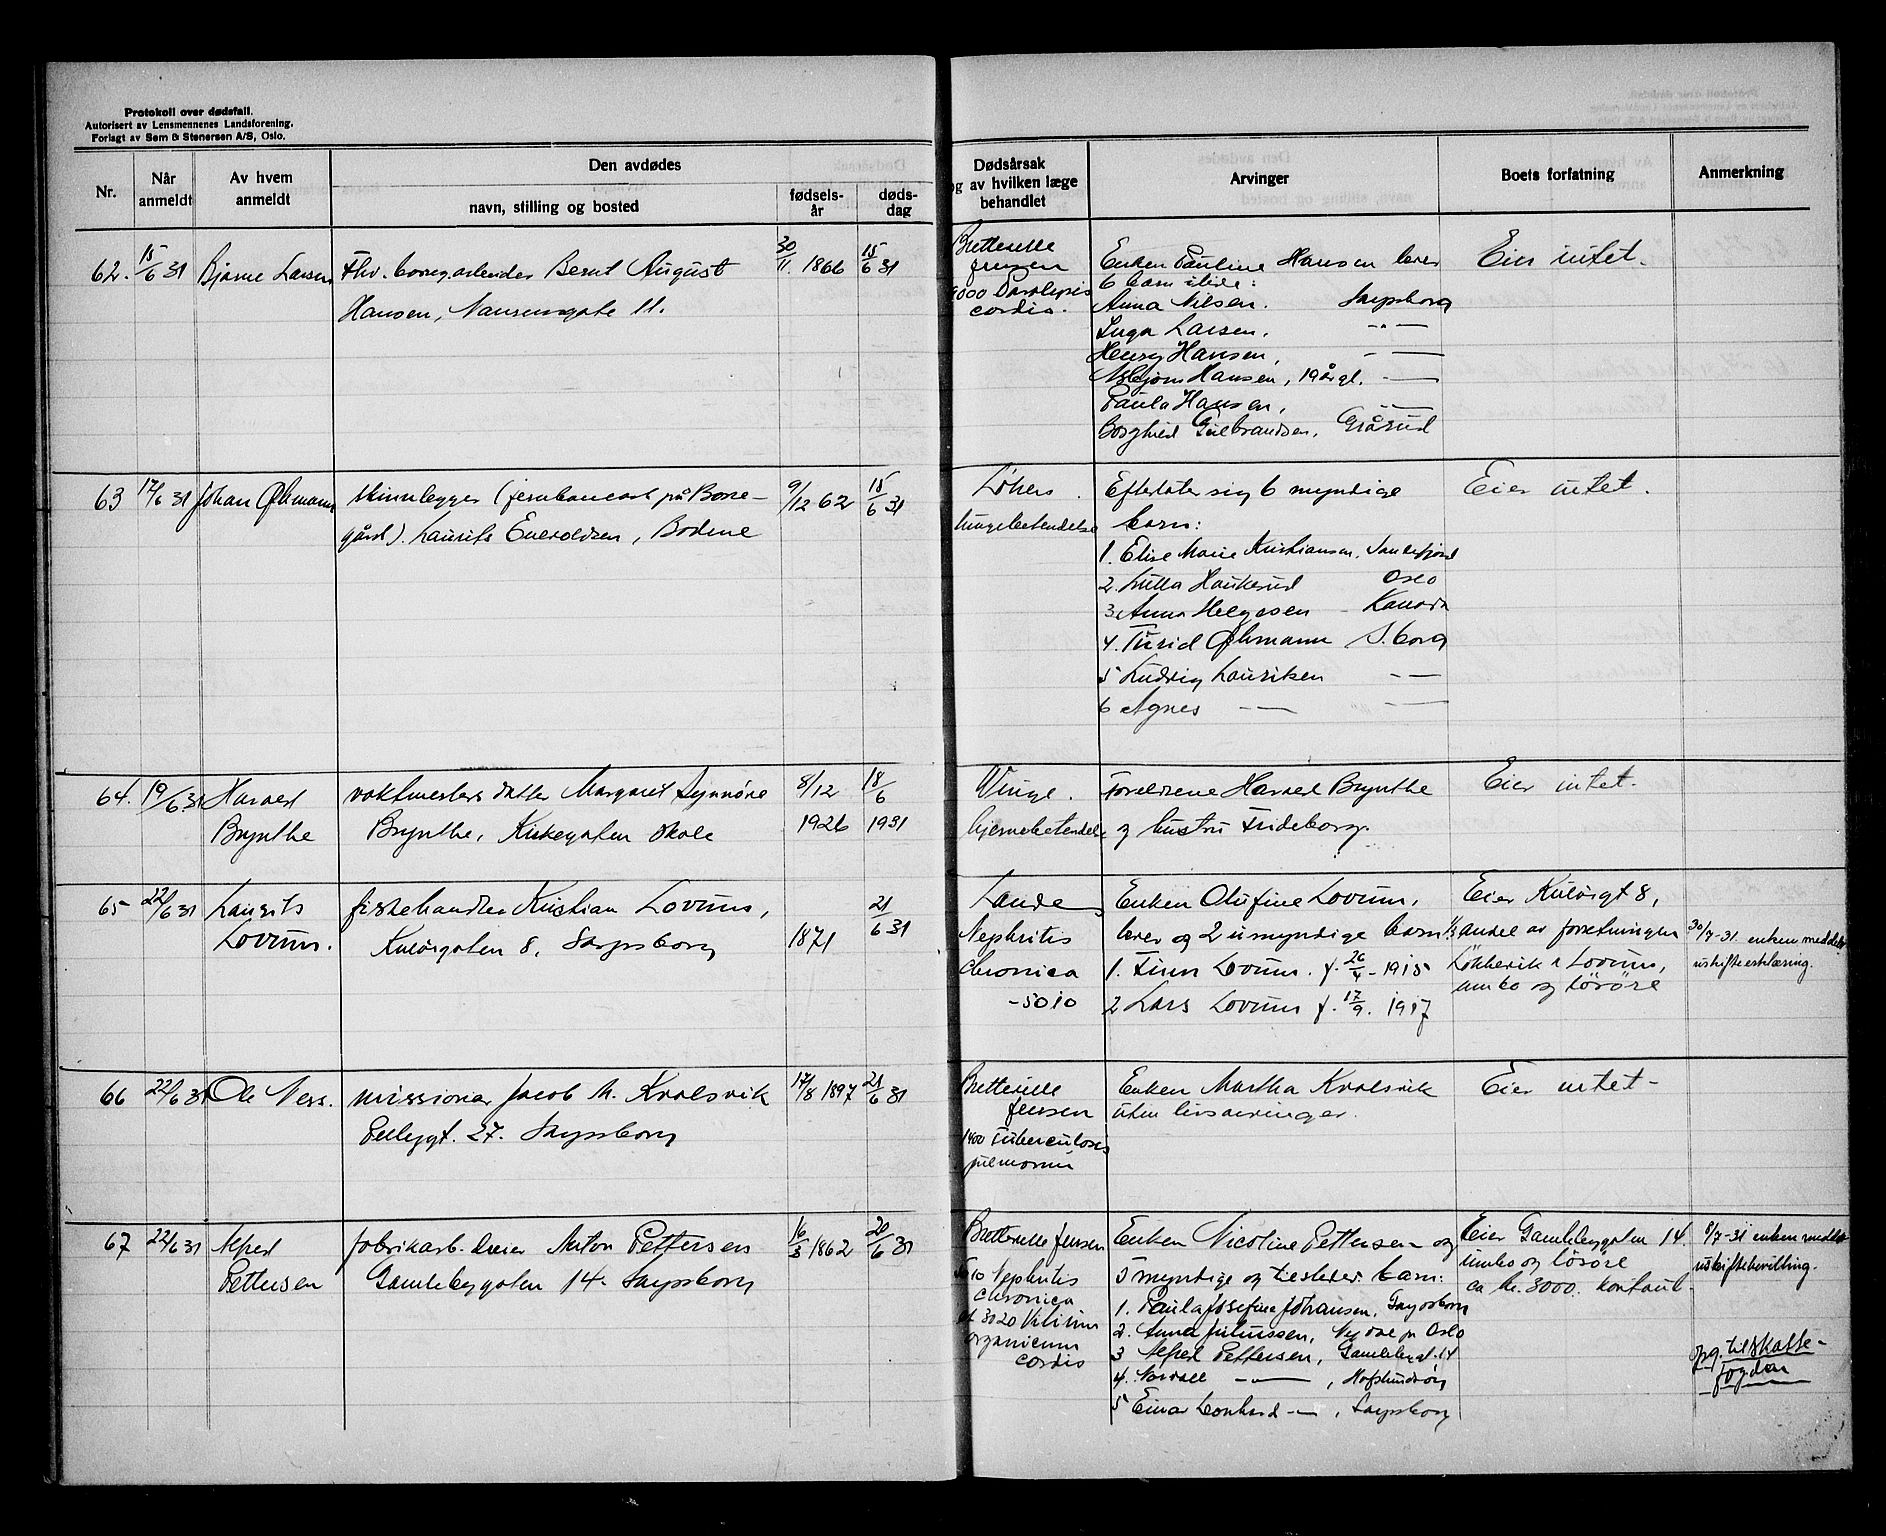 Protokoll over dødsfall.
Autorisert av Lensmennenes Landsforening.
Forlagt av Sem & Stenersen A/S, Oslo.
Nr.
Når anmeldt
Av hvem anmeldt
Den avdødes
navn, stilling og bosted
fødsels-år
døds-dag
Dødsårsak
og av hvilken læge
behandlet
Arvinger
Boets forfatning
Anmerkning
62. 15/6 31 Bjarne Larsen Fhv. borreg.arbeider Bernt August 30/11. 1866 15/6 31
Hansen, Nansensgate 11.
Bretteville
Jensen
Paralysis
cordis.
Enken Pauline Hansen lever
6 barn ilive:
Anna Nilsen. Sarpsborg
Inga Larsen, -"-
Henry Hansen, —
Asbjørn Hansen, 19 år gl. —
Paula Hansen, —
Borghild Gulbrandsen, Gråsrud
Eier intet.
63 17/6 31 Johan Øhmann skinnlegger (jernbanearb på Borre-
gård). Laurits Enevoldsen, Bodene
9/12 62 15/6 31
Løken
lungebetendelse
Efterlater sig 6 myndige
barn:
1. Elise Marie Kristiansen, Sandefjord
2. Lulla Haukerud Oslo
3. Anna Helgesen - Kanada
4. Turid Øhmann S.borg
5 Ludvig Lauritsen — —
6 Agnes — — —
Eier intet.
64. 19/6 31 Harald vaktmesters datter Margaret Synnöve 8/12 18/6
Brynthe Brynthe, Kirkegaten skole 1926 1931
Winge.
hjernebetendelse
Foreldrene Harald Brynthe
og hustru Frideborg.
Eier intet.
65 22/6 31 Laurits fiskehandler Kristian Lovum, 21/6 31
Lovum. Kulåsgaten 8, Sarpsborg 1871
Lande
Nephritis
chronica
-5010
Enken Olufine Lovum,
lever og 2 umyndige barn:
1. Finn Lovum. f. 26/4 - 1915
2 Lars Lovum f. 17/9. 1917
Eier Kulåsgt 8,
½ andel av forretningen
Løkkevik & Lovum,
innbo og løsøre
30/7-31. enken meddelt
uskifteerklæring.
66 22/6 31 Ole Ness. missionær Jacob M. Kvalsvik 17/8 1897 21/6 31
Pellygt. 27. Sarpsborg
Bretteville
Jensen
1400 Tuberculosis
pulmonum
Enken Martha Kvalsvik
uten livsarvinger.
Eier intet-
67 22/6 31 Alfred fabrikarb. eier Anton Pettersen 16/3 1862 20/6 31
Pettersen Gamlebygaten 14. Sarpsborg
Bretteville Jensen
Nephritis
chronica
et 3020 Vitium
organicum
cordis
Enken Nicoline Pettersen og
5 myndige og tilstedev. barn:
1. Paula Josefine Johansen, Sarpsborg
2. Anna Juliussen, pr Oslo
3 Alfred Pettersen, Gamlebygt. 14
4. Norvall — — , Hafslundsøy
5 Einar Leonhard — , Sarpsborg
Eier Gamlebygaten 14.
innbo og løsøre
ca kr. 3000. kontant.
8/7-31 enken meddelt
uskiftebevilling.
opg. til skatte-
fogden